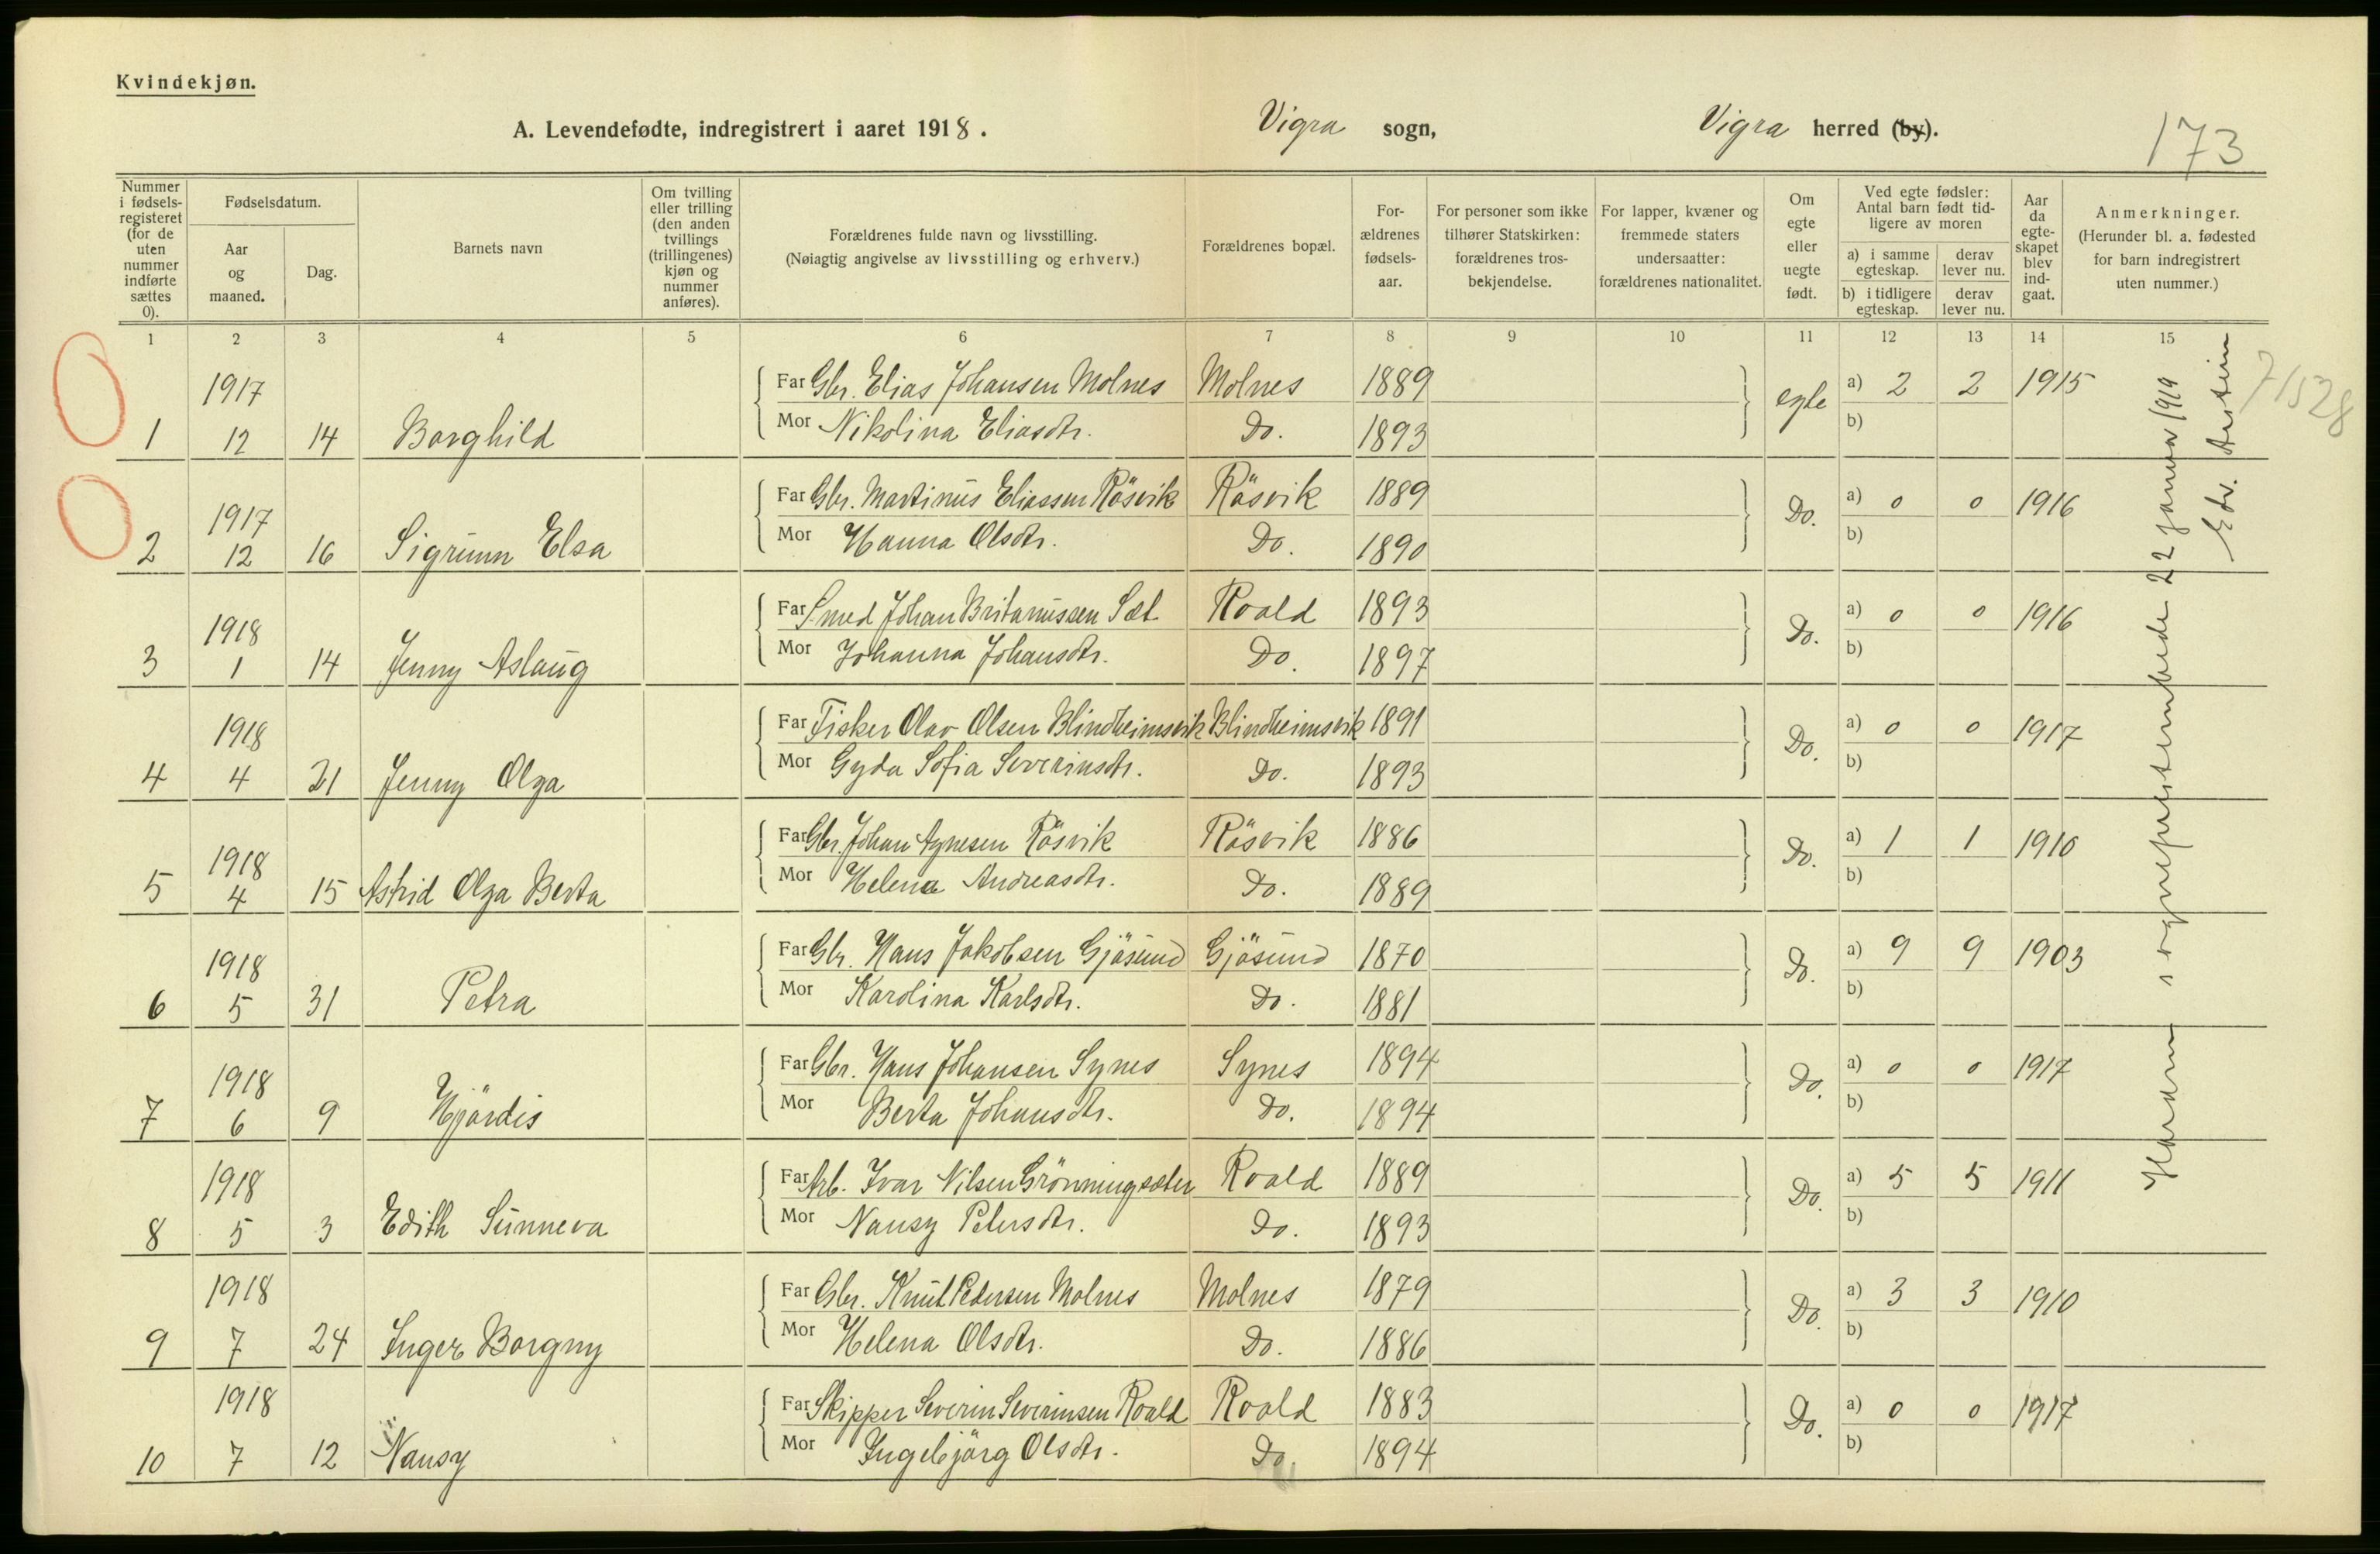 Kvindekjøn.
A. Levendefødte, indregistrert i aaret 1918. Vigra sogn, Vigra herred (by).
173
Nummer i fødsels-registeret (for de uten nummer indførte sættes 0).
Fødselsdatum.
Aar og maaned.
Dag.
Barnets navn
Om tvilling eller trilling (den anden tvillings (trillingenes) kjøn og nummer anføres).
Forældrenes fulde navn og livsstilling.
(Nøiagtig angivelse av livsstilling og erhverv.)
Forældrenes bopæl.
For-ældrenes fødsels-aar.
For personer som ikke tilhører Statskirken: forældrenes tros-bekjendelse.
For lapper, kvæner og fremmede staters undersaatter: forældrenes nationalitet.
Om egte eller uegte født.
Ved egte fødsler: Antal barn født tid-ligere av moren
a) i samme egteskap.
derav lever nu.
b) i tidligere egteskap.
derav lever nu.
Aar da egte-skapet blev ind-gaat.
Anmerkninger.
(Herunder bl. a. fødested for barn indregistrert uten nummer.)
1 2 3 4 5 6 7 8 9 10 11 12 13 14 15
1917 Far Gbr. Elias Johansen Molnes Molnes 1889 egte a) 2 2 1915
1 12 14 Borghild Mor Nikolina Eliasdtr. Do. 1893 b)
1917 Far Gbr. Martinus Eliassen Røsvik Røsvik 1889 Do. a) 0 0 1916
2 12 16 Sigrunn Elsa Mor Hanna Olsdtr. Do. 1890 b)
1918 Far Smed Johan Britanussen Sæt Roald 1893 Do. a) 0 0 1916
3 1 14 Jenny Aslaug Mor Johanna Johansdtr. Do. 1897 b)
1918 Far Fisker Olav Olsen Blindheimsvik Blindheimsvik 1891 Do. a) 0 0 1917
4 4 21 Jenny Olga Mor Gyda Sofia Severinsdtr. Do. 1893 b)
1918 Far Gbr. Johan Agnesen Røsvik Røsvik 1886 Do. a) 1 1 1910
5 4 15 Astrid Olga Berta Mor Helena Andreasdtr. Do. 1889 b)
1918 Far Gbr. Hans Jakobsen Gjøsund Gjøsund 1870 Do. a) 9 9 1903
6 5 31 Petra Mor Karolina Karlsdtr. Do. 1881 b)
1918 Far Gbr. Hans Johansen Synes Synes 1894 Do. a) 0 0 1917
7 6 9 Hjördis Mor Berta Johansdtr. Do. 1894 b)
1918 Far Arb. Ivar Nilsen Grönningsæter Roald 1889 Do. a) 5 5 1911
8 5 3 Edith Sunneva Mor Nansy Petersdtr. Do. 1893 b)
1918 Far Gbr. Knut Pedersen Molnes Molnes 1879 Do. a) 3 3 1910
9 7 24 Inger Borgny Mor Helena Olsdtr. Do. 1886 b)
1918 Far Skipper Severin Severinsen Roald Roald 1883 Do. a) 0 0 1917
10 7 12 Nansy Mor Ingebjörg Olsdtr. Do. 1894 b)
Haram sogneprestembede 22 januar 1919
Edv.
71528